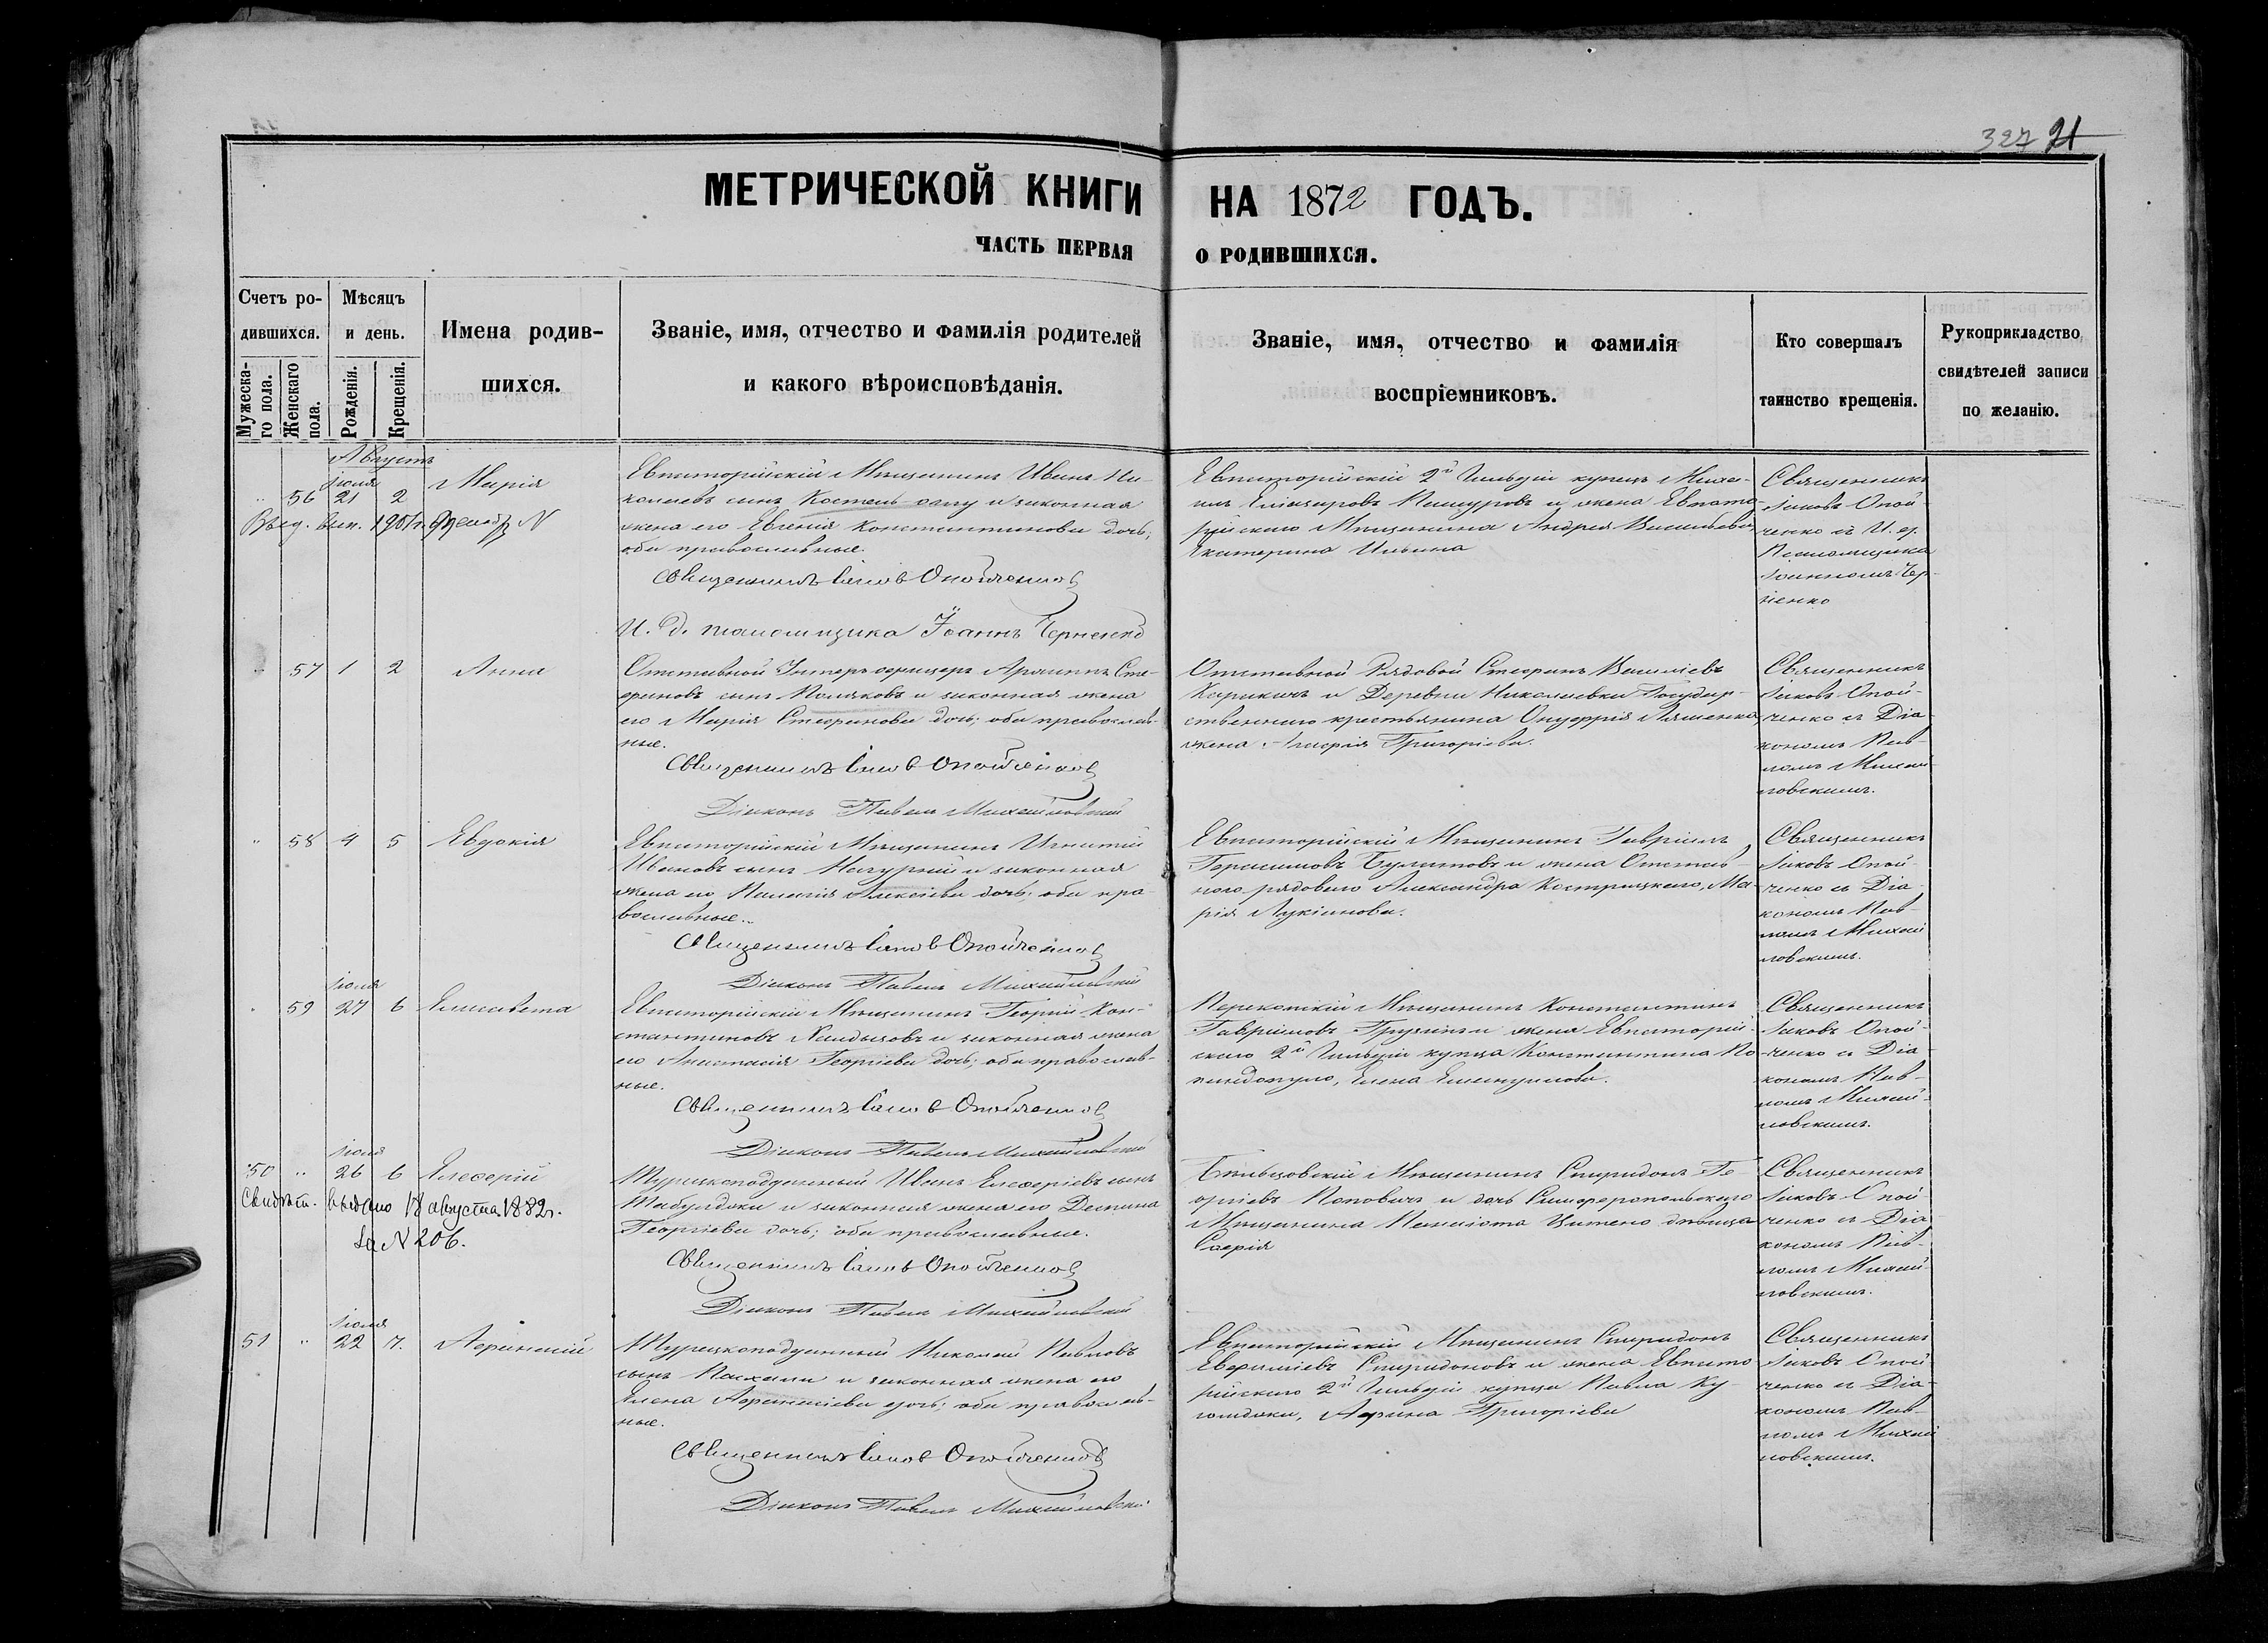 327 21
МЕТРИЧЕСКОЙ КНИГИ НА 1872 ГОДЪ.
ЧАСТЬ ПЕРВАЯ О РОДИВШИХСЯ.
Счетъ ро-
дившихся.
Мужеска-
го пола.
Женскаго
пола.
Мѣсяцъ
и день.
Рожденія.
Крещенія.
Имена родив-
шихся.
Званіе, имя, отчество и фамилія родителей
и какого вѣроисповѣданія.
Званіе, имя, отчество и фамилія
воспріемниковъ.
Кто совершалъ
таинство крещенія.
Рукоприкладство
свидѣтелей записи
по желанію.
Августъ
іюля
56 21 2 Марія
Евпаторійскій Мѣщанинъ Иванъ Ни-
колаевъ сынъ и законная
жена его Евгенія Константинова дочь;
оба православные.
Священникъ Іаковъ Опойченковъ
И. д. псаломщика Іоаннъ Черненко
Евпаторійскій 2й Гильдіи купецъ Миха-
илъ и жена Евпато-
рійскаго Мѣщанина Андрея Васильева
Екатерина Ильина
Священникъ
Іаковъ Опой-
ченко съ И. д.
Псаломщика
Іоанномъ Чер-
ненко
57 1 2 Анна
Отставной Унтеръ офицеръ Стe-
фановъ сынъ Поляковъ и законная жена
его Марія Стефанова дочь; оба православ-
ные.
Священникъ Іаковъ Опойченковъ
Діаконъ Павелъ Михайловскій
Отставной Рядовой Стефанъ Василіевъ
и Деревни Николаевки Государ-
ственнаго крестьянина Онуфрія Ляшенка
жена Григоріева.
Священникъ
Іаковъ Опой-
ченко съ Діа-
кономъ Пав-
ломъ Михай-
ловскимъ.
58 4 5 Евдокія
Евпаторійскій Мѣщанинъ Игнатій
Ивановъ сынъ и законная
жена его Пелагія Алексіева дочь; оба пра-
вославные.
Священникъ Іаковъ Опойченковъ
Діаконъ Павелъ Михайловскій
Евпаторійскій Мѣщанинъ Гавріилъ
Герасимовъ Булатовъ и жена Отстав-
наго рядоваго Александра Кострицкаго, Ма-
рія Лукіанова.
Священникъ
Іаковъ Опой-
ченко съ Діа-
кономъ Пав-
ломъ Михай
ловскимъ.
іюля
59 27 6 Елисавета
Евпаторійскій Мѣщанинъ Георгій Кон-
стантиновъ и законная жена
его Анастасія Георгіева дочь; оба православ-
ные.
Священникъ Іаковъ Опойченковъ
Діаконъ Павелъ Михайловскій
Перекопскій Мѣщанинъ Константинъ
Гавріиловъ и жена Евпаторій-
скаго 2й Гильдіи купца Константина По
пандопуло, Елена
Священникъ
Іаковъ Опой-
ченко съ Діа-
кономъ Пав-
ломъ Михай-
ловскимъ.
іюля
50 26 6 Елеѳерій
Свидѣт. выдано 18 августа 1882г.
за N 206.
Турецкоподданный Иванъ Елеѳеріевъ сынъ
и законная жена его Деспина
Георгіева дочь; оба православные.
Священникъ Іаковъ Опойченковъ
Діаконъ Павелъ Михайловскій
Мѣщанинъ Спиридонъ Ге-
оргіевъ Поповичъ и дочь Симферопольскаго
Мѣщанина Панаіота дѣвица
Софія
Священникъ
Іаковъ Опой-
ченко съ Діа-
кономъ Пав-
ломъ Михай-
ловскимъ.
іюля
51 22 7. Аѳанасій
Турецкоподданный Николай Павловъ
сынъ Пасхали и законная жена его
Елена Аѳанасіева дочь; оба православ-
ные.
Священникъ Іаковъ Опойченковъ
Діаконъ Павелъ Михайловскій
Евпаторійскій Мѣщанинъ Спиридонъ
Евфиміевъ Спиридоновъ и жена Евпато
рійскаго 2й Гильдіи купца Павла
Григоріева
Священникъ
Іаковъ Опой-
ченко съ Діа-
кономъ Пав-
ломъ Михай
ловскимъ.